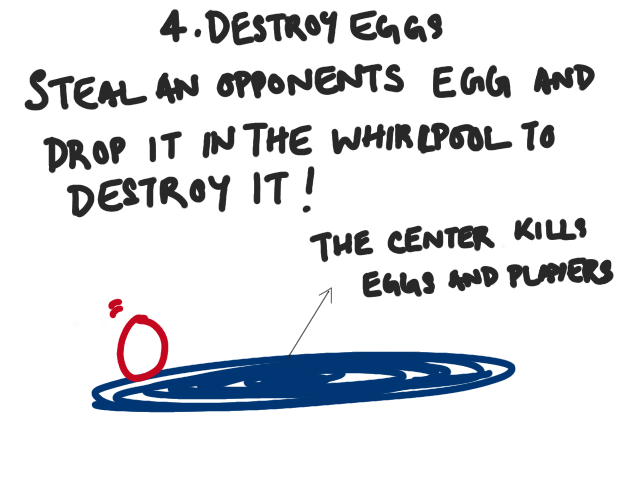 4. DESTROY EGGS
STEAL AN OPPONENTS EGG AND
DROP IT IN THE WHIRLPOOL TO
DESTROY IT!
THE CENTER KILLS
EGGS AND PLAYERS